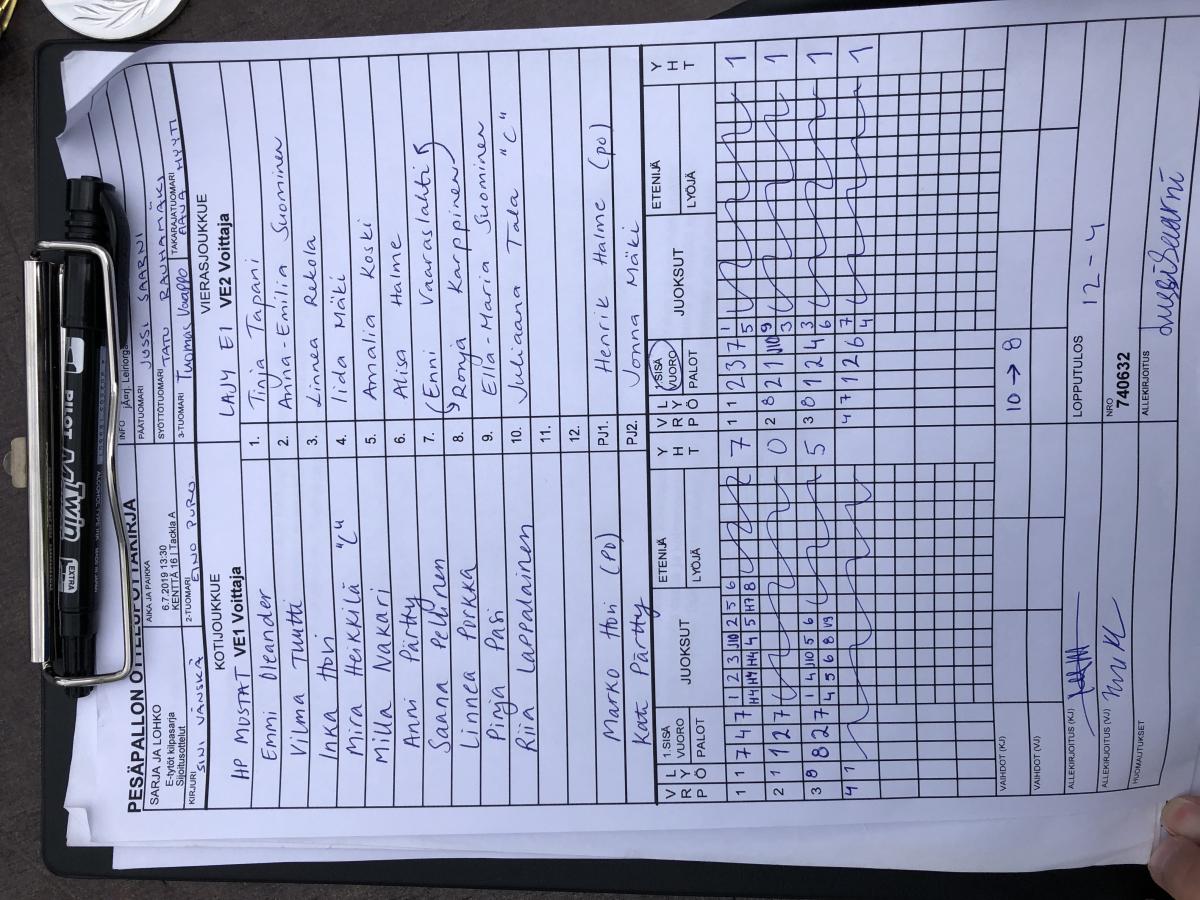 PESÄPALLON OTTELUPÖYTÄKIRJA
INFO
SARJA JA LOHKO
E-tytöt kilpasarja
Sijoitusottelut
AIKA JA PAIKKA
6.7.2019 13:30
KENTTÄ 16 | Tackla A
PÄÄTUOMARI JUSSI SAARNI
SYÖTTÖTUOMARI TATU RAUHAMÄKI
KIRJURI SINI VÄNSKÄ
2-TUOMARI EINO PURO
3-TUOMARI Tuomas Vaappo
TAKARAJATUOMARI AANA MYYTI
KOTIJOUKKUE
VIERASJOUKKUE
HP MUSTAT VE1 Voittaja
LAJY E1 VE2 Voittaja
Emmi Oleander
1. Tinja Tapani
Vilma Tuutti
2. Anna-Emilia Suominen
Inka Hovi
3. Linnea Rekola
Mira Heikkilä "C"
4. Iida Mäki
Milla Nakari
5. Amalia Koski
Anni Pärtty
6. Alisa Halme
Saana Pellinen
7. (Enni Vaaraslahti
Linnea Porkka
8. Ronja Karppinen
Pinja Pasi
9. Ella-Maria Suominen
Riia Lappalainen
10. Juliaana Tala "C"
11.
12.
Marko Hovi (PO)
PJ1. Henrik Halme (po)
Kati Pärtty
PJ2. Jonna Mäki
VRP LYÖ 1.SISÄ VUORO PALOT JUOKSUT ETENIJÄ LYÖJÄ YHT
VRP LYÖ 1.SISÄ VUORO PALOT JUOKSUT ETENIJÄ LYÖJÄ YHT
1 1 7 4 7 1 2 3 J10 2 5 6 7
H4 H4 H4 4 5 H7 8
1 1 2 3 7 1 1
5
2 1 1 2 7 0
2 8 2 1 J10 9 1
3
3 8 8 2 7 1 4 J10 5 6 5
4 5 6 8 V9
3 8 1 2 4 3 1
6
4 1
4 7 1 2 6 7 1
4
VAIHDOT (KJ)
10 → 8
VAIHDOT (VJ)
ALLEKIRJOITUS (KJ)
LOPPUTULOS 12 - 4
ALLEKIRJOITUS (VJ)
NRO
740632
HUOMAUTUKSET
ALLEKIRJOITUS
Jussi Saarni
PILOT
Twin
EXTRA